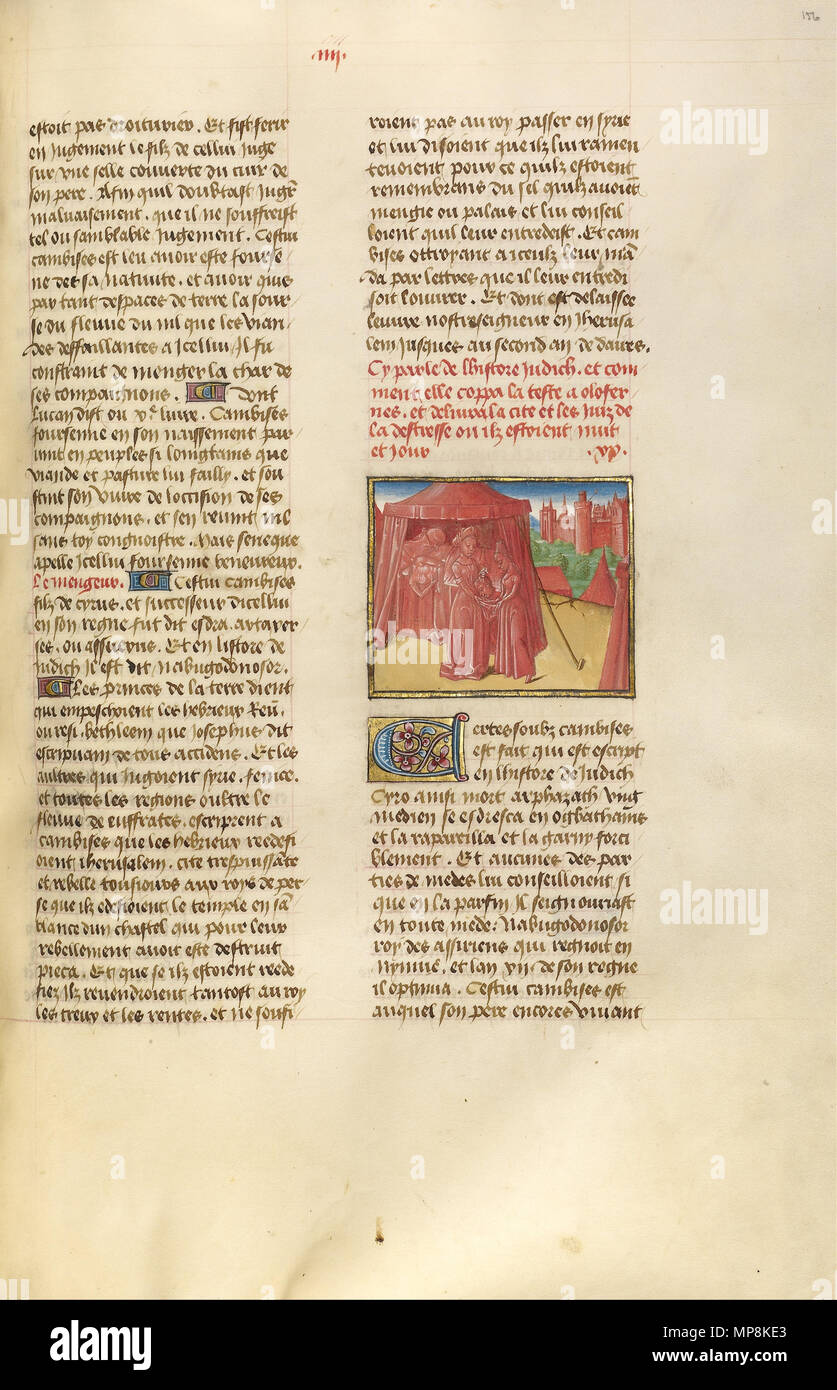 156
.iiij.
estoit pas droiturier. Et fist ferir
en Jugement le filz de cellui Juge
sur vne selle couverte du cuir de
son pere. Affin quil doubtast Jugr
malvaisement. que il ne souffreist
tel ou samblable Jugement. Cestui
cambises est leu avoir este fourse
ne des sa nativite. et avoir quis
par tant despaces de terre la sour
se du fleuve du nil que les vian
des deffaillantes a Jcellui Jl fu
constraint de menger la char de
ses compaignons. Dont
Lucan dist ou xe livre. Cambises
foursenne en son naissement par
vint en peuples si longtams que
viande et pasture lui failly. et sou
stint son vivre de loccision de ses
compaignons. et sen revint nil
sans toy congnoistre. Mais seneque
apelle Jcellui foursenne veneureux.
Le mengeur. Cestui cambises
filz de cyrus. et successeur dicellui
en son regne fut dit esdra. artaxer
ses. ou assuerus. Et en listore de
Judich Jl est dit Nabugodonosor.
Les princes de la terre dient
qui empeschoient les hebrieux Reū.
ou resi. bethleem que Josephus dit
escripuain de tous accidens. Et les
aultres qui Jugoient syrie. fenice.
et toutes les regions oultre le
fleuve de euffrates. escriprent a
cambises que les hebrieux reedefi
oient iherusalem. cite trespuissāte
et rebelle tousiours aux roys de per
se que ilz edefioient le temple en sā
blance dun chastel qui pour leur
rebellement avoit este destruit
pieca. Et que se ilz estoient reede
fiez ilz revendroient tantost au roy
les treux et les rentes. et ne soufi
roient pas au roy passer en syrie
et lui disoient que ilz lui ramen
tevoient pour ce quilz estoient
remembrans du sel quilz avoiēt
mengie ou palais et lui conseil
loient quil leur entredeist. Et cam
bises ottroyant a iceulx leur mā
da par lettres que il leur entredi
soit louvrer. Et dont est delaissee
leuvre nostreseigneur en Jherusa
lem Jusques au second an de daires.
Cy parle de lhistore Judich. et com
ment elle coppa la teste a olofer
nes. et delivra la cite et les Juiz de
la destresse ou ilz estoient nuit
et Jour .xv.
Certes soubz cambises
est fait qui est escript
en lhistore de Judich
Cyro ainsi mort arphazath vng
medien se esdresca en egbathanis
et la rapareilla et la garny forci
blement. Et aucunes des par
ties de medes lui conseilloient si
que en la parfin Jl seignouriast
en toute mede. Nabugodonosor
roy des assiriens qui regnoit en
Nynivē. et lan xij. de son regne
il optinia. Cestui cambises est
auquel son pere encores vivant
alamy
Image ID: MP8KE3
www.alamy.com